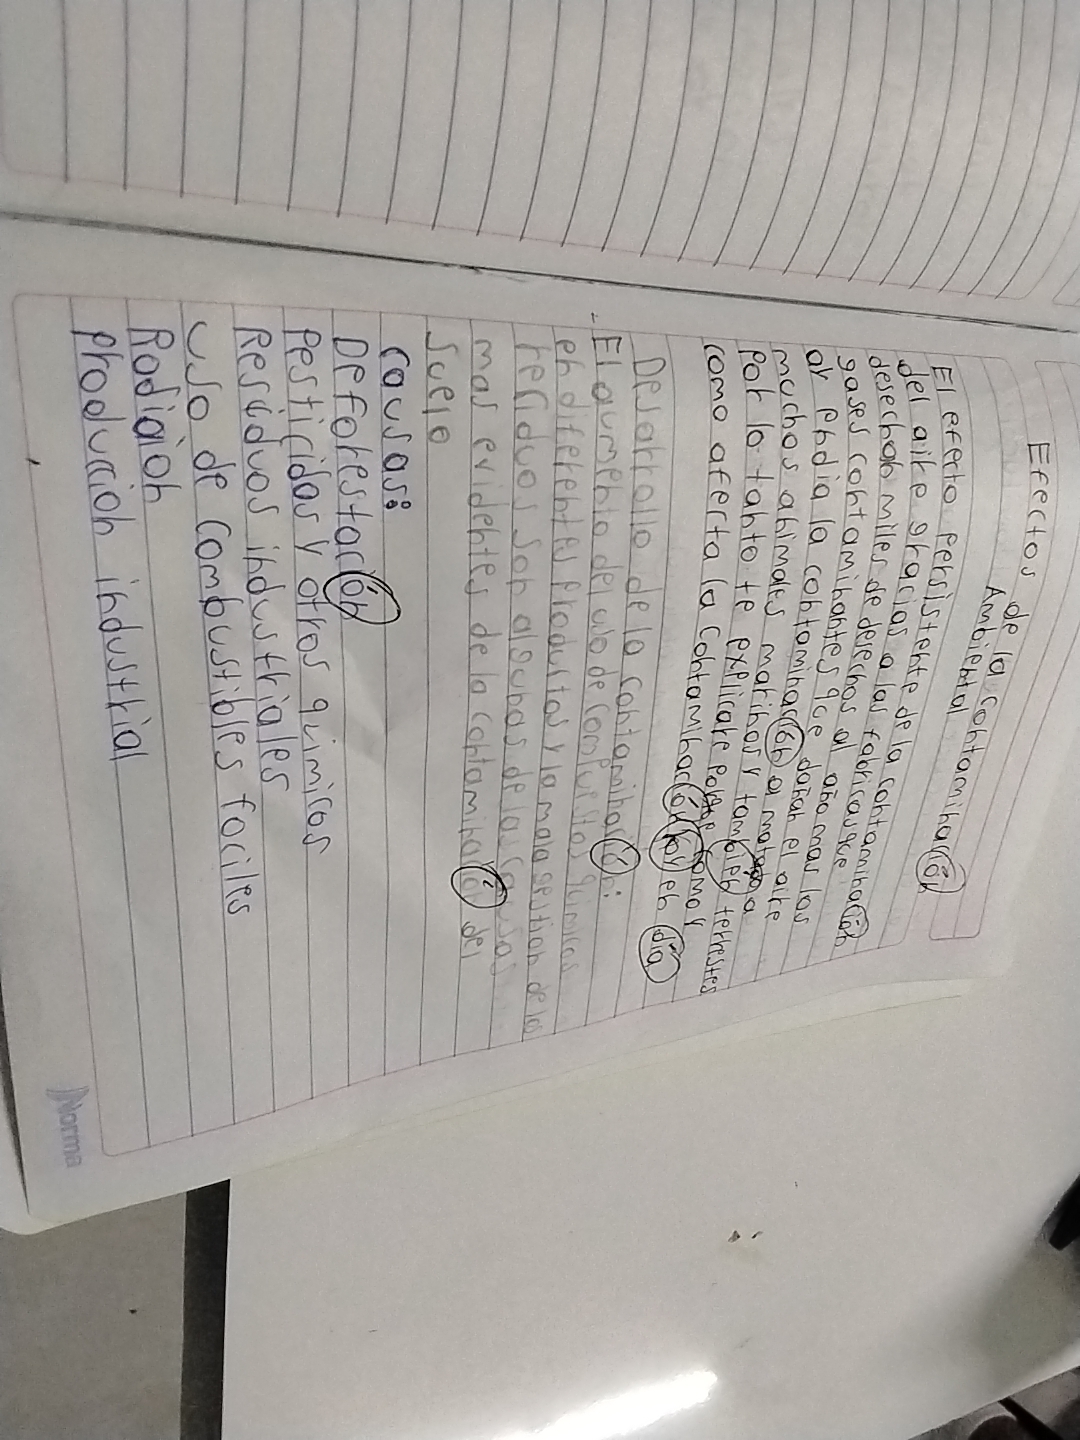 Efectos de la contaminación
Ambiental
El efecto persistente de la contaminación
del aire gracias a las fabricas que
desechan miles de desechos al año mas los
gases contaminantes que dañan el aire
oy endia la contaminación a matado a
muchos animales marinos y tambien terrestes
Por lo tanto te explicare como y
como afecta la contaminación hoy en día
Desarrollo de la contaminación:
El aumento del uso de compuestos quimicos
en diferentes productos y la mala gestion de los
reciduos son algunas de las causas
mas evidentes de la contaminación del
Suelo
causas:
Deforestación
Pesticidas y otros quimicos
Residuos industriales
uso de combustibles fociles
Radiaion
Produccion industrial
Norma